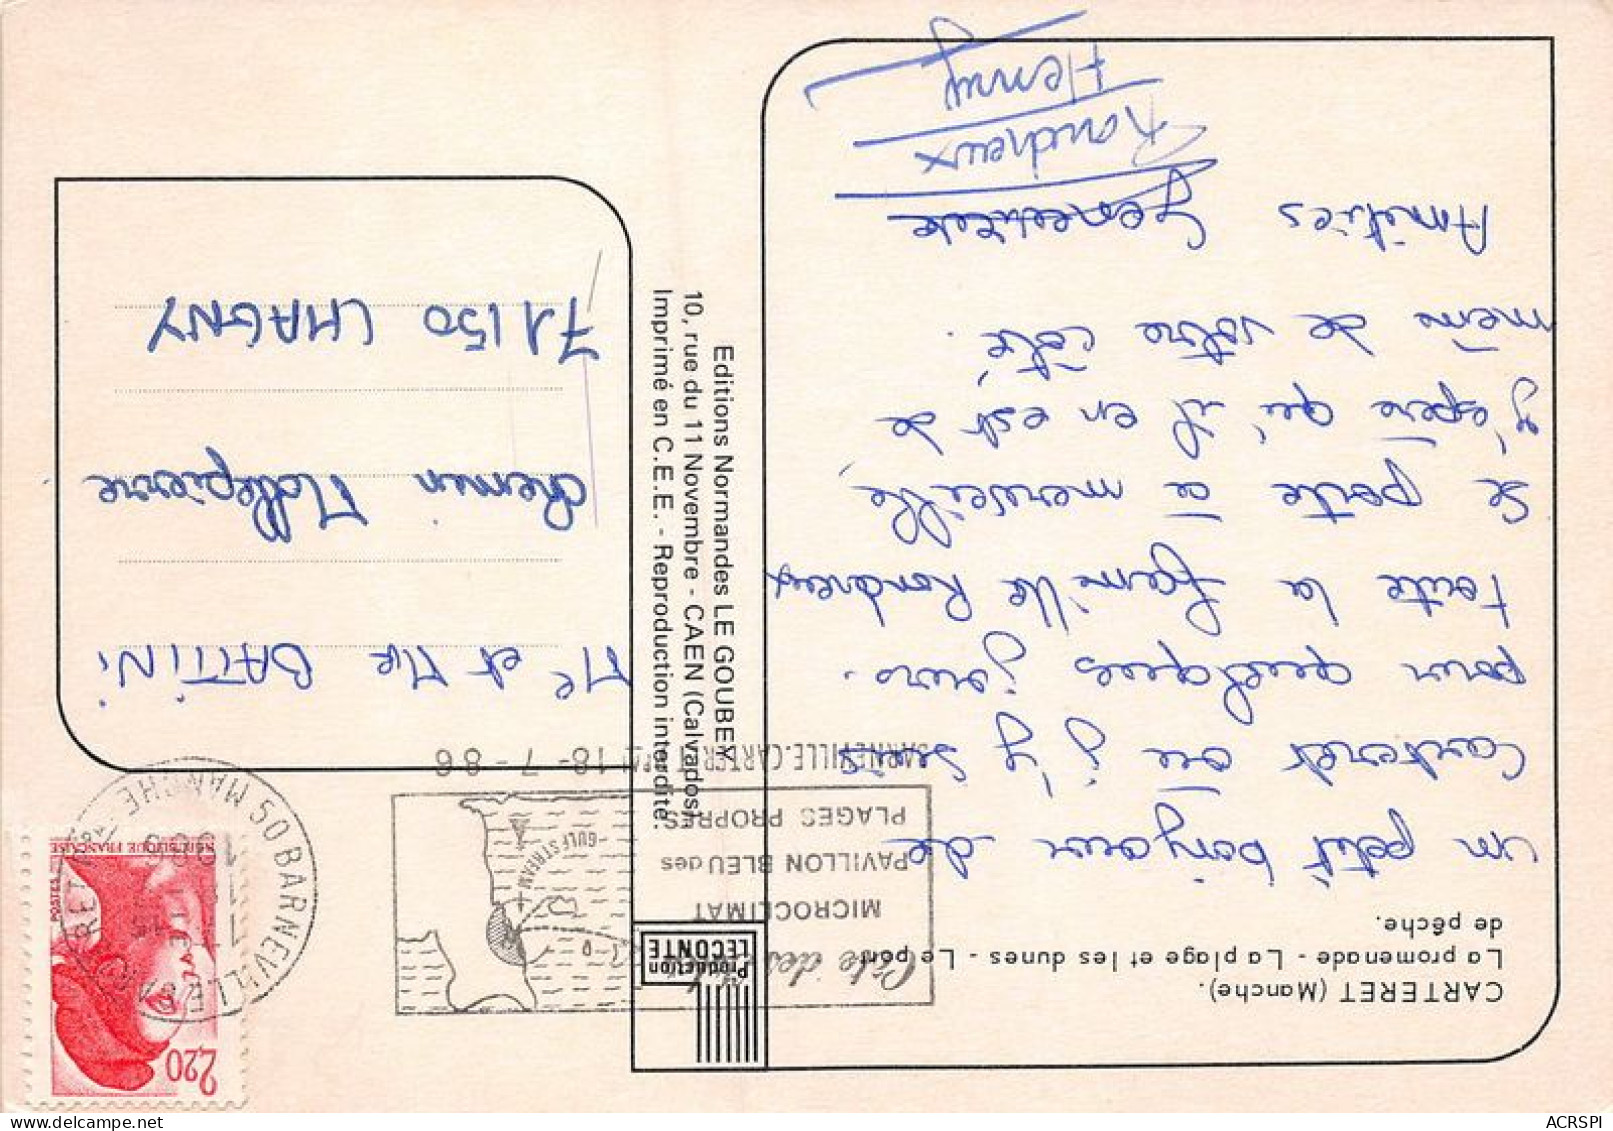 CARTERET (Manche).
La promenade - La plage et les dunes - Le port
de pêche.
un petit bonjour de
Carteret où j'y suis
pour quelques jours.
toute la famille Rondreux
se porte à merveille,
j'espère qu'il en est de
même de votre côté.
Amitiés Geneviève
Rondreux
Henry
Production
LECONTE
Editions Normandes LE GOUBEY
10, rue du 11 Novembre - CAEN (Calvados)
Imprimé en C.E.E. - Reproduction interdite.
Côte des
MICROCLIMAT
PAVILLON BLEU des
PLAGES PROPRES
GULF STREAM
BARNEVILLE-CARTERET 18-7-86
50 BARNEVILLE CARTERET MANCHE
2,20
POSTES
REPUBLIQUE FRANÇAISE
Mr et Me BATTINI
chemin Mollepierre
71150 CHAGNY
ACRSPI